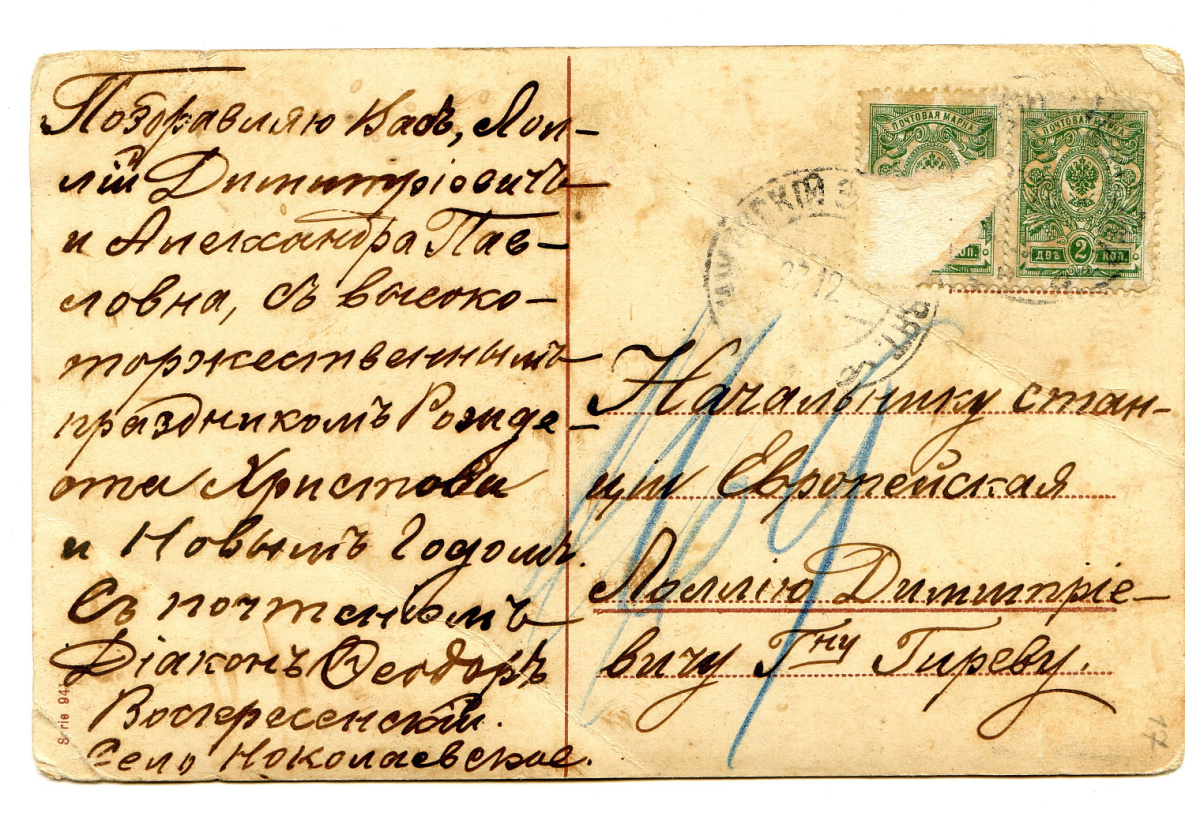 Поздравляю Васъ, Лол-
лій Димитріовичъ
и Александра Пав-
ловна, съ высоко-
торжественнымъ
праздникомъ Рожде-
ства Христова
и Новымъ Годомъ.
Съ почтеніемъ
Діаконъ Ѳеодоръ
Воскресенскій.
Село Николаевское.
Serie 94
ПОЧТОВАЯ МАРКА
КОП.
ПОЧТОВАЯ МАРКА
ДВѢ 2 КОП.
27 12
Начальнику стан-
ціи Европейская
Лоллію Димитріе-
вичу Гну Гиреву.
17